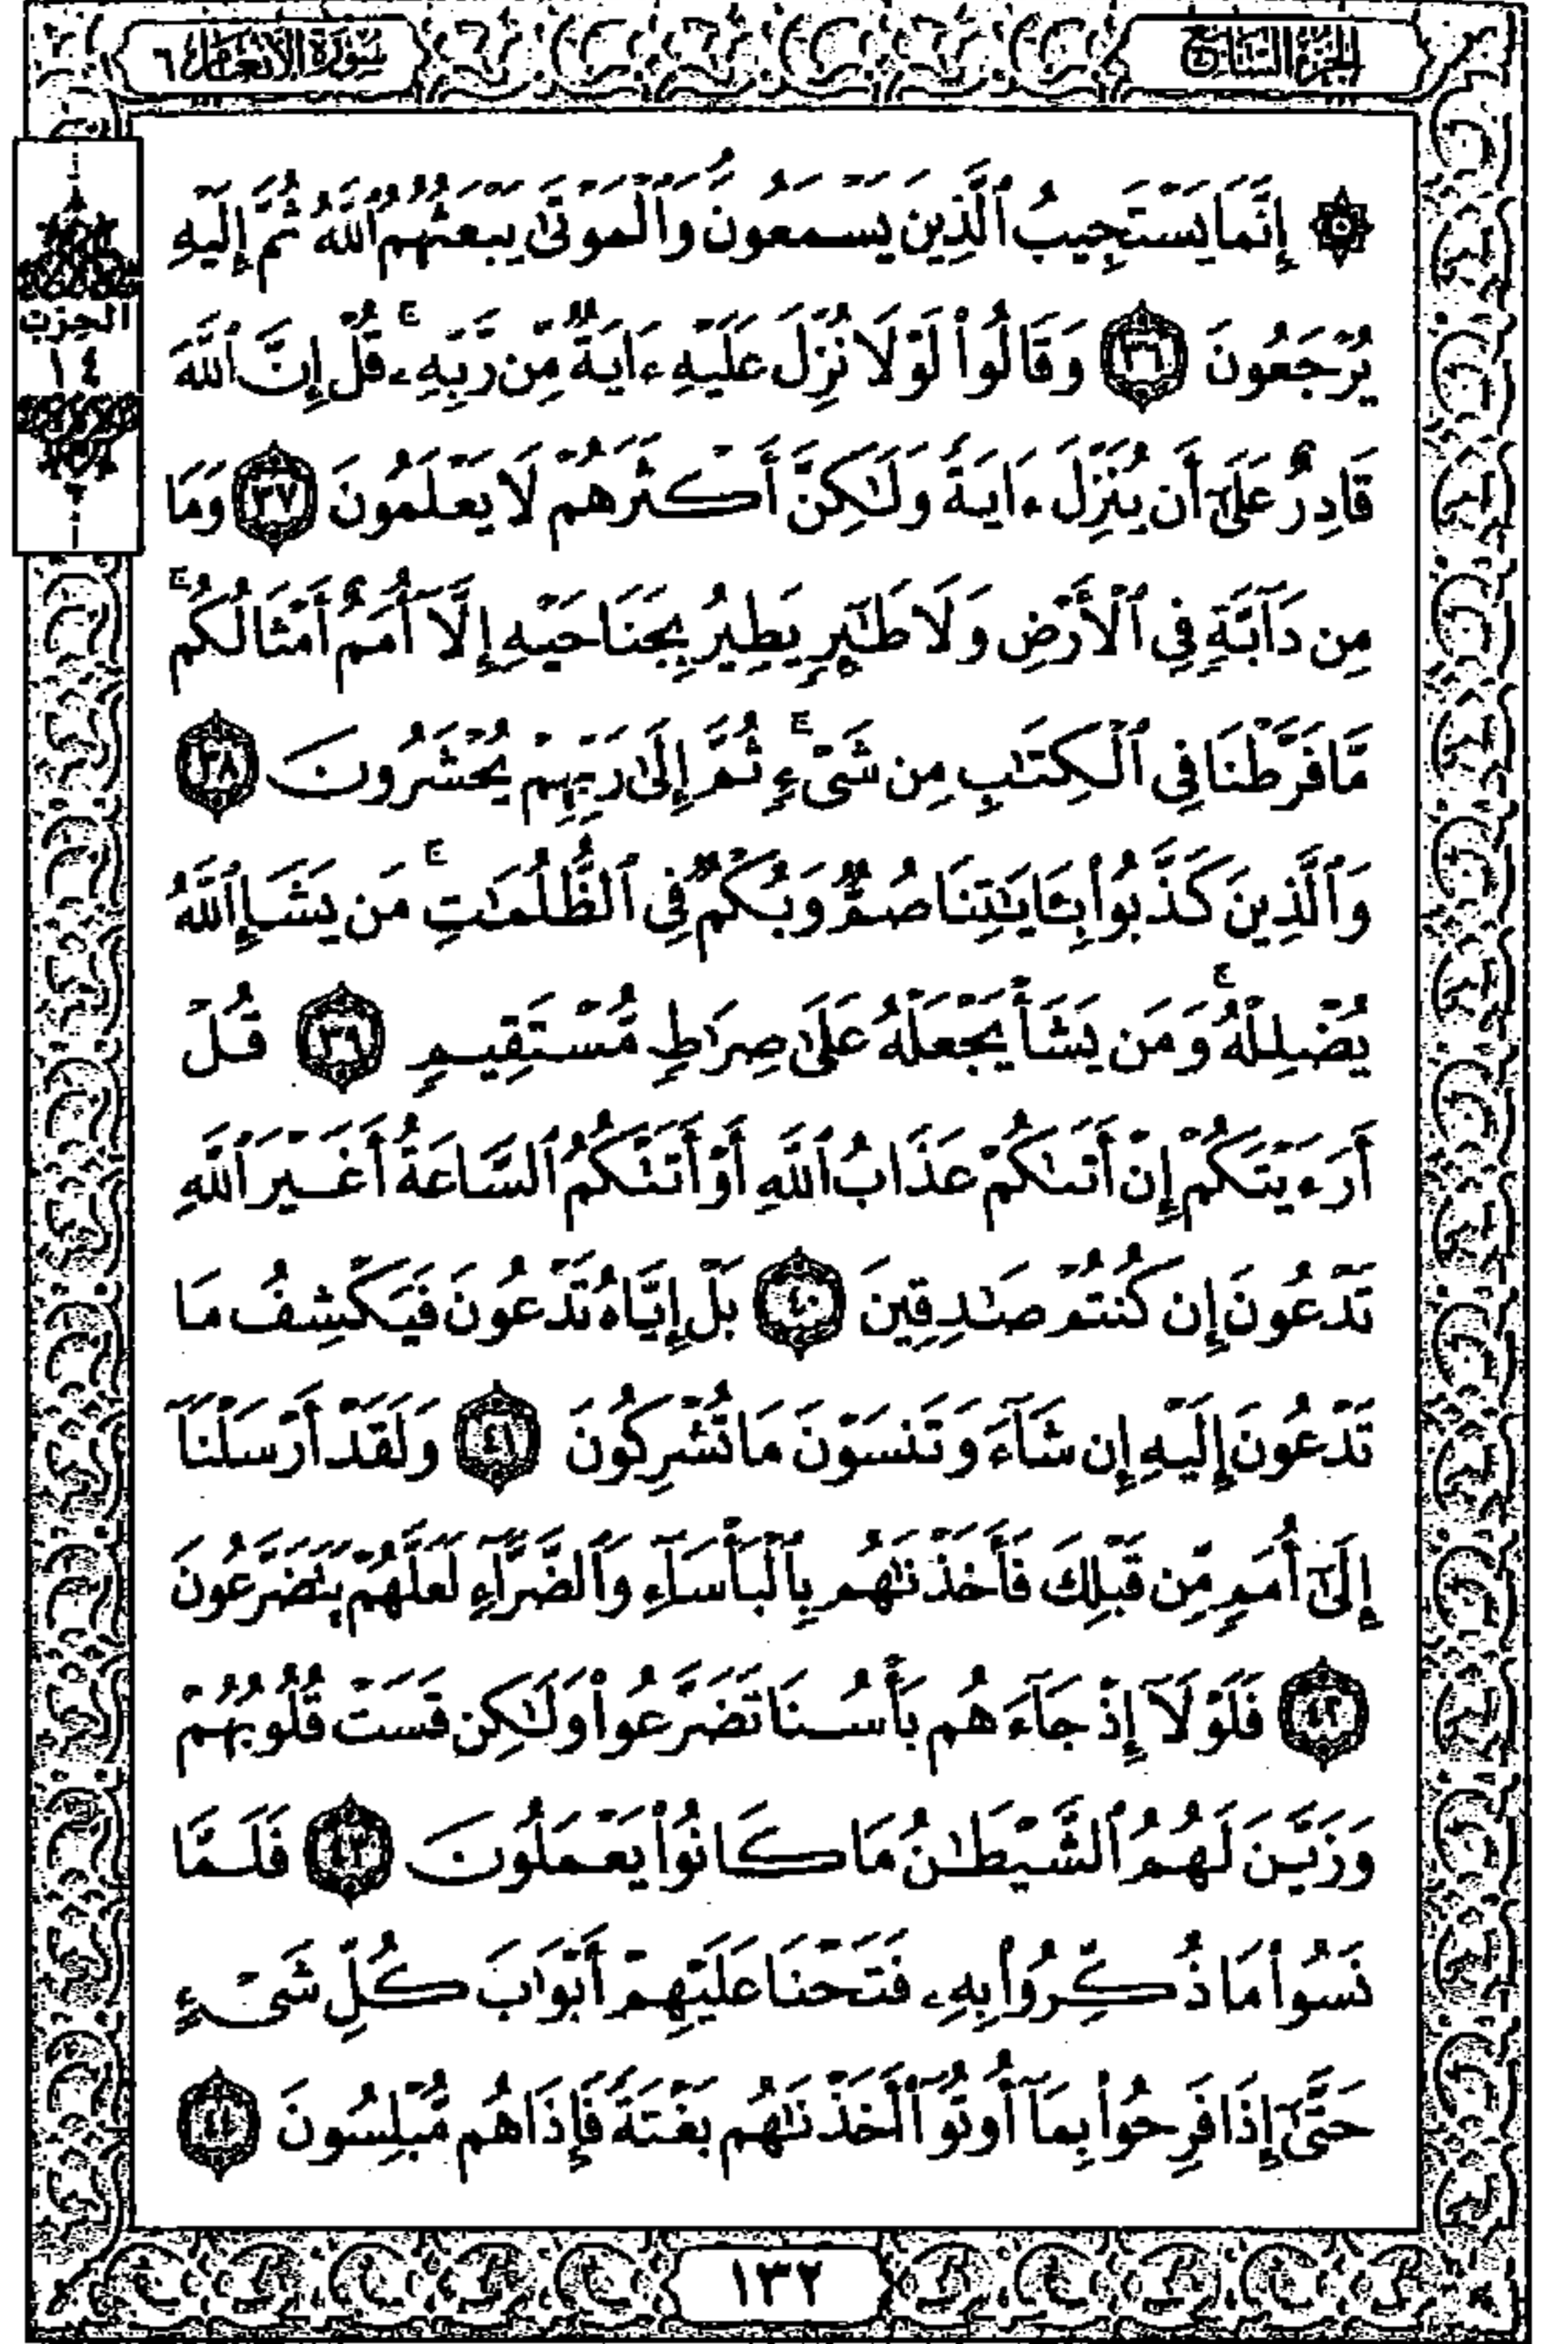 الجزء السابع
سورة الأنعام ٦
الحزب
١٤
۞ إِنَّمَا يَسْتَجِيبُ ٱلَّذِينَ يَسْمَعُونَ وَٱلْمَوْتَىٰ يَبْعَثُهُمُ ٱللَّهُ ثُمَّ إِلَيْهِ
يُرْجَعُونَ ٣٦ وَقَالُوا۟ لَوْلَا نُزِّلَ عَلَيْهِ ءَايَةٌ مِّن رَّبِّهِۦ ۚ قُلْ إِنَّ ٱللَّهَ
قَادِرٌ عَلَىٰٓ أَن يُنَزِّلَ ءَايَةً وَلَـٰكِنَّ أَكْثَرَهُمْ لَا يَعْلَمُونَ ٣٧ وَمَا
مِن دَآبَّةٍ فِى ٱلْأَرْضِ وَلَا طَـٰٓئِرٍ يَطِيرُ بِجَنَاحَيْهِ إِلَّآ أُمَمٌ أَمْثَالُكُم ۚ
مَّا فَرَّطْنَا فِى ٱلْكِتَـٰبِ مِن شَىْءٍ ۚ ثُمَّ إِلَىٰ رَبِّهِمْ يُحْشَرُونَ ٣٨
وَٱلَّذِينَ كَذَّبُوا۟ بِـَٔايَـٰتِنَا صُمٌّ وَبُكْمٌ فِى ٱلظُّلُمَـٰتِ ۗ مَن يَشَإِ ٱللَّهُ
يُضْلِلْهُ ۚ وَمَن يَشَأْ يَجْعَلْهُ عَلَىٰ صِرَٰطٍ مُّسْتَقِيمٍ ٣٩ قُلْ
أَرَءَيْتَكُمْ إِنْ أَتَىٰكُمْ عَذَابُ ٱللَّهِ أَوْ أَتَتْكُمُ ٱلسَّاعَةُ أَغَيْرَ ٱللَّهِ
تَدْعُونَ إِن كُنتُمْ صَـٰدِقِينَ ٤٠ بَلْ إِيَّاهُ تَدْعُونَ فَيَكْشِفُ مَا
تَدْعُونَ إِلَيْهِ إِن شَآءَ وَتَنسَوْنَ مَا تُشْرِكُونَ ٤١ وَلَقَدْ أَرْسَلْنَآ
إِلَىٰٓ أُمَمٍ مِّن قَبْلِكَ فَأَخَذْنَـٰهُم بِٱلْبَأْسَآءِ وَٱلضَّرَّآءِ لَعَلَّهُمْ يَتَضَرَّعُونَ
٤٢ فَلَوْلَآ إِذْ جَآءَهُم بَأْسُنَا تَضَرَّعُوا۟ وَلَـٰكِن قَسَتْ قُلُوبُهُمْ
وَزَيَّنَ لَهُمُ ٱلشَّيْطَـٰنُ مَا كَانُوا۟ يَعْمَلُونَ ٤٣ فَلَمَّا
نَسُوا۟ مَا ذُكِّرُوا۟ بِهِۦ فَتَحْنَا عَلَيْهِمْ أَبْوَٰبَ كُلِّ شَىْءٍ
حَتَّىٰٓ إِذَا فَرِحُوا۟ بِمَآ أُوتُوٓا۟ أَخَذْنَـٰهُم بَغْتَةً فَإِذَا هُم مُّبْلِسُونَ ٤٤
١٣٢